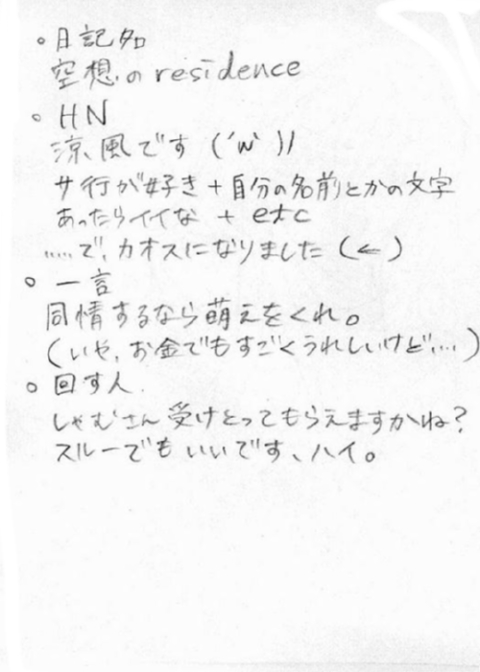 。日記名
空想のresidence
。HN
涼風です ('ω'))
サ行が好き+自分の名前とかの文字
あったらイイな + etc
……で、カオスになりました (←)
。一言
同情するなら萌えをくれ。
(いや、お金でもすごくうれしいけど…)
。回す人
しゃむさん受けとってもらえますかね?
スルーでもいいです、ハイ。